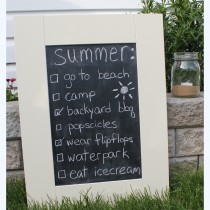 summer:
go to beach
camp
backyard bbq
popscicles
wear flipflops
waterpark
eat icecream